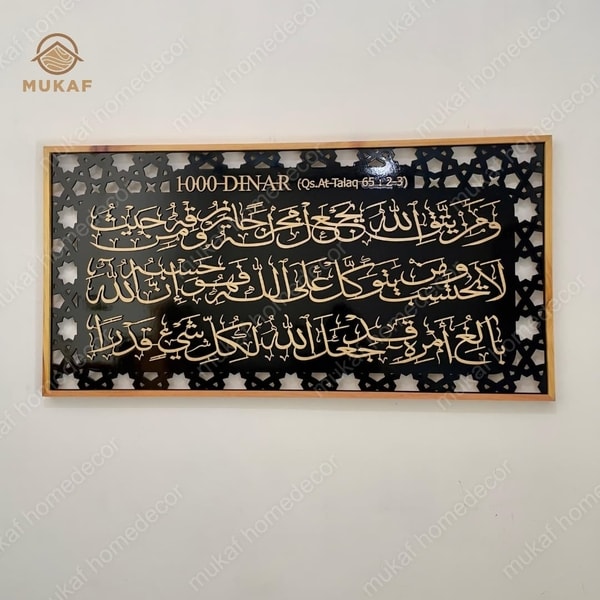 MUKAF
1000 DINAR (Qs.At-Talaq 65 : 2-3)
وَمَن يَتَّقِ اللَّهَ يَجْعَل لَّهُ مَخْرَجًا وَيَرْزُقْهُ مِنْ حَيْثُ
لَا يَحْتَسِبُ وَمَن يَتَوَكَّلْ عَلَى اللَّهِ فَهُوَ حَسْبُهُ إِنَّ اللَّهَ
بَالِغُ أَمْرِهِ قَدْ جَعَلَ اللَّهُ لِكُلِّ شَيْءٍ قَدْرًا
mukaf homedecor